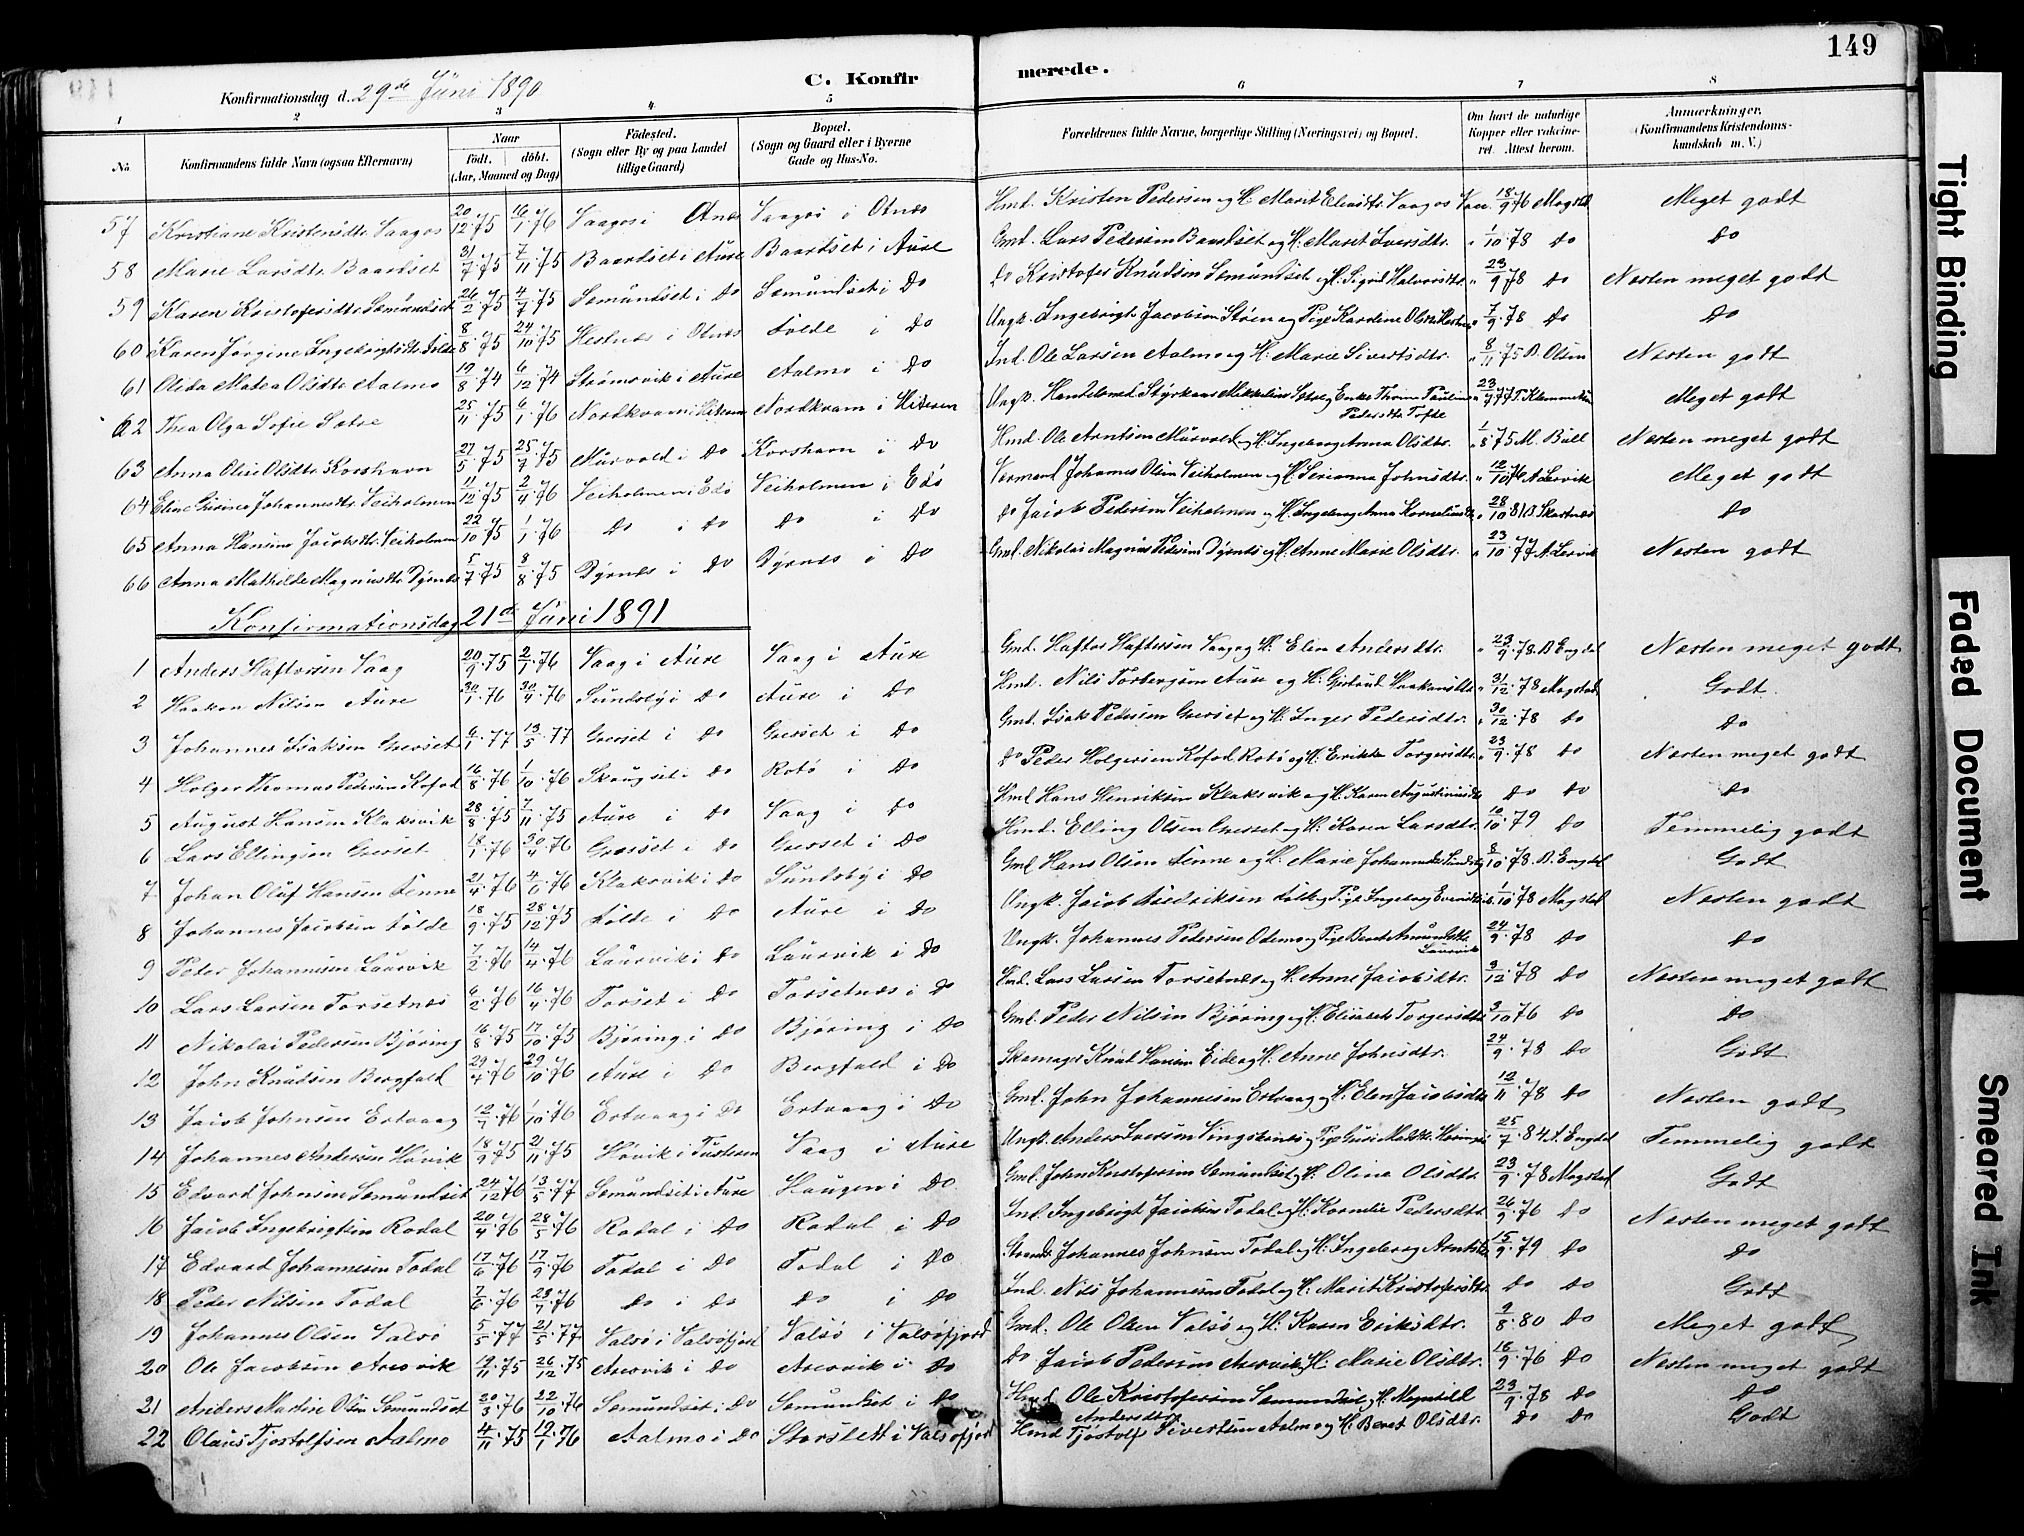 149
C. Konfirmerede.
Konfirmationsdag d. 29de Juni 1890
1 2 3 4 5 6 7 8
No. Konfirmandens fulde Navn (ogsaa Efternavn) Naar født. døbt. (Aar, Maaned og Dag) Fødested. (Sogn eller By og paa Landet tillige Gaard) Bopæl. (Sogn og Gaard eller i Byerne Gade og Hus-No. Forældrenes fulde Navne, borgerlige Stilling (Næringsvei) og Bopæl. Om havt de naturlige Kopper eller vakcineret. Attest herom. Anmærkninger. (Konfirmandens Kristendomskundskab m. V.)
57 Kristiane Kristensdtr. Saagøs 20/12 75 16/1 76 Saagøs i Otnæs Hmd. Kristen Pedersen og H. Marit 18/9 76 Magstad Meget godt
58 Marie Larsdtr. Baardset 31/7 75 7/11 75 Baardset i Aure Baardset i Aure Gmd. Lars Pedersen Baardset og H. Marit Iversdtr. 1/10 78 do do
59 Karen Kristofersdtr. Semundset 26/2 75 4/7 75 Semundset i Do Semundset i Do do Kristofer Knudsen Semundset og H. Sigrid Halvorsdtr. 23/9 78 do Næsten meget godt
60 Karen Jørgine Ingebrigtsdtr. 8/8 75 24/10 75 Hestnes i Otnæs i Do Ungk. Ingebrigt Jacobsen Støen og Pige Karoline 7/9 78 do do
61 Olida Matea Olsdtr. Aalmo 19/8 74 6/12 74 Strømsvik i Aure Aalmo i Do Ind. Ole Larsen Aalmo og H. Marie Sivertsdtr. 8/11 75 B. Olsen Næsten godt
62 Thea Olga Sofie 25/11 75 6/1 76 Nordkvam i Nordkvam i Ungk. Handelsmd. Pedersdtr. Tofte Meget godt
63 Anna Oline Olsdtr. Korshavn 27/5 75 25/7 75 Murvold i Do Korshavn i Do Hmd. Ole Arntsen Murvold og H. Ingeborg Anna Olsdtr. 1/8 75 M. Bull Næsten meget godt
64 Eline Johannesdtr. Veiholmen 11/12 75 2/4 76 Veiholmen i Edø Veiholmen i Edø Johannes Olsen Veiholmen og H. Serianna Johnsdtr. 12/10 76 Meget godt
65 Anna Hansine Jacobsdtr. Veiholmen 22/10 75 1/1 76 Do i Do Do i Do do Jacob Pedersen Veiholmen og H. Ingeborg Anna Kornelius 28/10 81 do
66 Anna Mathilde Magnusdtr. Dyrnes 5/7 75 8/8 75 Dyrnes i Do Dyrnes i Do Gmd. Nikolai Magnus Pedersen Dyrnes og H. Anne Marie Olsdtr. 23/10 77 Næsten godt
Konfirmationsdag 21de Juni 1891
1 Anders Haftorsen Vaag 20/9 75 2/1 76 Vaag i Aure Vaag i Aure Gmd. Haftor Haftorsen Vaag og H. Elen Andersdtr. 23/9 78 Næsten meget godt
2 Haakon Nilsen Aure 30/1 76 30/4 76 Sundsby i Do Aure i Do Hmd. Nils Torbergsen Aure og H. Gjertrud 31/12 78 Magstad Godt
3 Johannes Isaksen Grevset 6/1 77 13/5 77 Grevset i Do Grevset i Do Gmd. Isak Pedersen Grevset og H. Inger Pedersdtr. 30/12 78 do do
4 Holger Thomas Pedersen Kofod 16/8 76 1/10 76 Skougset i Do Rotø i Do do Peder Holgersen Kofod Rotø og H. Erikke Torgersdtr. 23/9 78 do Næsten meget godt
5 August Hansen Klaksvik 28/8 75 7/11 75 Aure i Do Vaag i Do Hmd Hans Henriksen Klaksvik og H. Karen do do do
6 Lars Ellingsen Grevset 18/1 76 30/4 76 Grevset i Do Grevset i Do Hmd. Elling Olsen Grevset og H. Karen Larsdtr. 10/10 79 do Temmelig godt
7 Johan Oluf Hansen 21/4 76 76 Klaksvik i Do Sundsby i Do Gmd Hans Olsen og H. Marie 8/10 78 Godt
8 Johannes Jacobsen 18/9 75 28/12 75 i Do Aure i Do Ungk. Jacob og Pige Ingeborg 1/10 78 Magstad Næsten godt
9 Peter Johannesen Laurvik 7/2 76 14/4 76 Laurvik i Do Laurvik i Do Ungk. Johannes Pedersen og Pige Laurvik 24/9 78 do do
10 Lars Larsen Torsetnes 6/2 76 16/4 76 Torset i Do Torsetnes i Do Lars Larsen Torsetnes og H. Anne Jacobsdtr. 3/12 78 do Næsten meget godt
11 Nikolai Pedersen Bjøring 16/8 75 17/10 75 Bjøring i Do Bjøring i Do Gmd. Peder Nilsen Bjøring og H. Elisabet Torgersdtr 3/10 76 do do
12 John Knudsen Bergfald 29/4 76 29/10 76 Aure i Do Bergfald i Do Skomager Knut Hansen Eide og H. Anne Johnsdtr. 24/9 78 do Godt
13 Jacob Johnsen Ertvaag 76 1/10 76 Ertvaag i Do Ertvaag i Do Gmd. John Johannesen Ertvaag og H. Elen Jacobsdtr 12/11 78 do Næsten godt
14 Johannes Andersen Høvik 18/9 75 21/11 75 Høvik i Tusteren Vaag i Aure Ungk. Anders Iversen og Pige 25/7 84 Temmelig godt
15 Edvard Johnsen Semundset 24/12 76 13/5 77 Semundset i Aure Haugen i Do Gmd. John Kristofersen Semundset og H. Oline Olsdtr. 23/9 78 Magstad Godt
16 Jacob Ingebrigtsen Rodal 20/4 76 28/5 76 Rodal i Do Rodal i Do Ind. Ingebrigt Jacobsen Todal og H. Kornelie Pedersdtr 26/9 76 do Næsten meget godt
17 Edvard Johannesen Todal 17/6 76 17/9 76 Todal i Do Todal i Do Johannes Johnsen Todal og H. Ingeborg Arntsdtr. 15/9 79 do do
18 Peder Nilsen Todal 7/6 76 76 Do i Do Do i Do Ind. Nils Johannesen Todal og H. Marit Kristofersdtr. do do Godt
19 Johannes Olsen Valsø 5/5 77 21/5 77 Valsø i Valsøfjord Valsø i Valsøfjord Gmd. Ole Olsen Valsø og H. Karen Eriksdtr. 9/8 80 do Meget godt
20 Ole Jacobsen Arsvik 75 26/12 75 Arsvik i Do Arsvik i Do Do Jacob Pedersen Arsvik og H. Marie Olsdtr. 16/9 76 do Næsten meget godt
21 Anders Martin Olsen Semundset 20/3 76 22/10 76 Semundset i Do Semundset i Do Hmd Ole Kristofersen Semundset og H. Magnhild Andersdtr 23/9 78 do do
22 Olaus Tjøstolfsen Aalmo 4/11 75 19/1 76 Aalmo i Do Storslett i Valsøfjord Hmd Tjøstolf Sivertsen Aalmo og H. Beret Olsdtr. do do Godt
Tight Binding
Faded Document
Smeared Ink